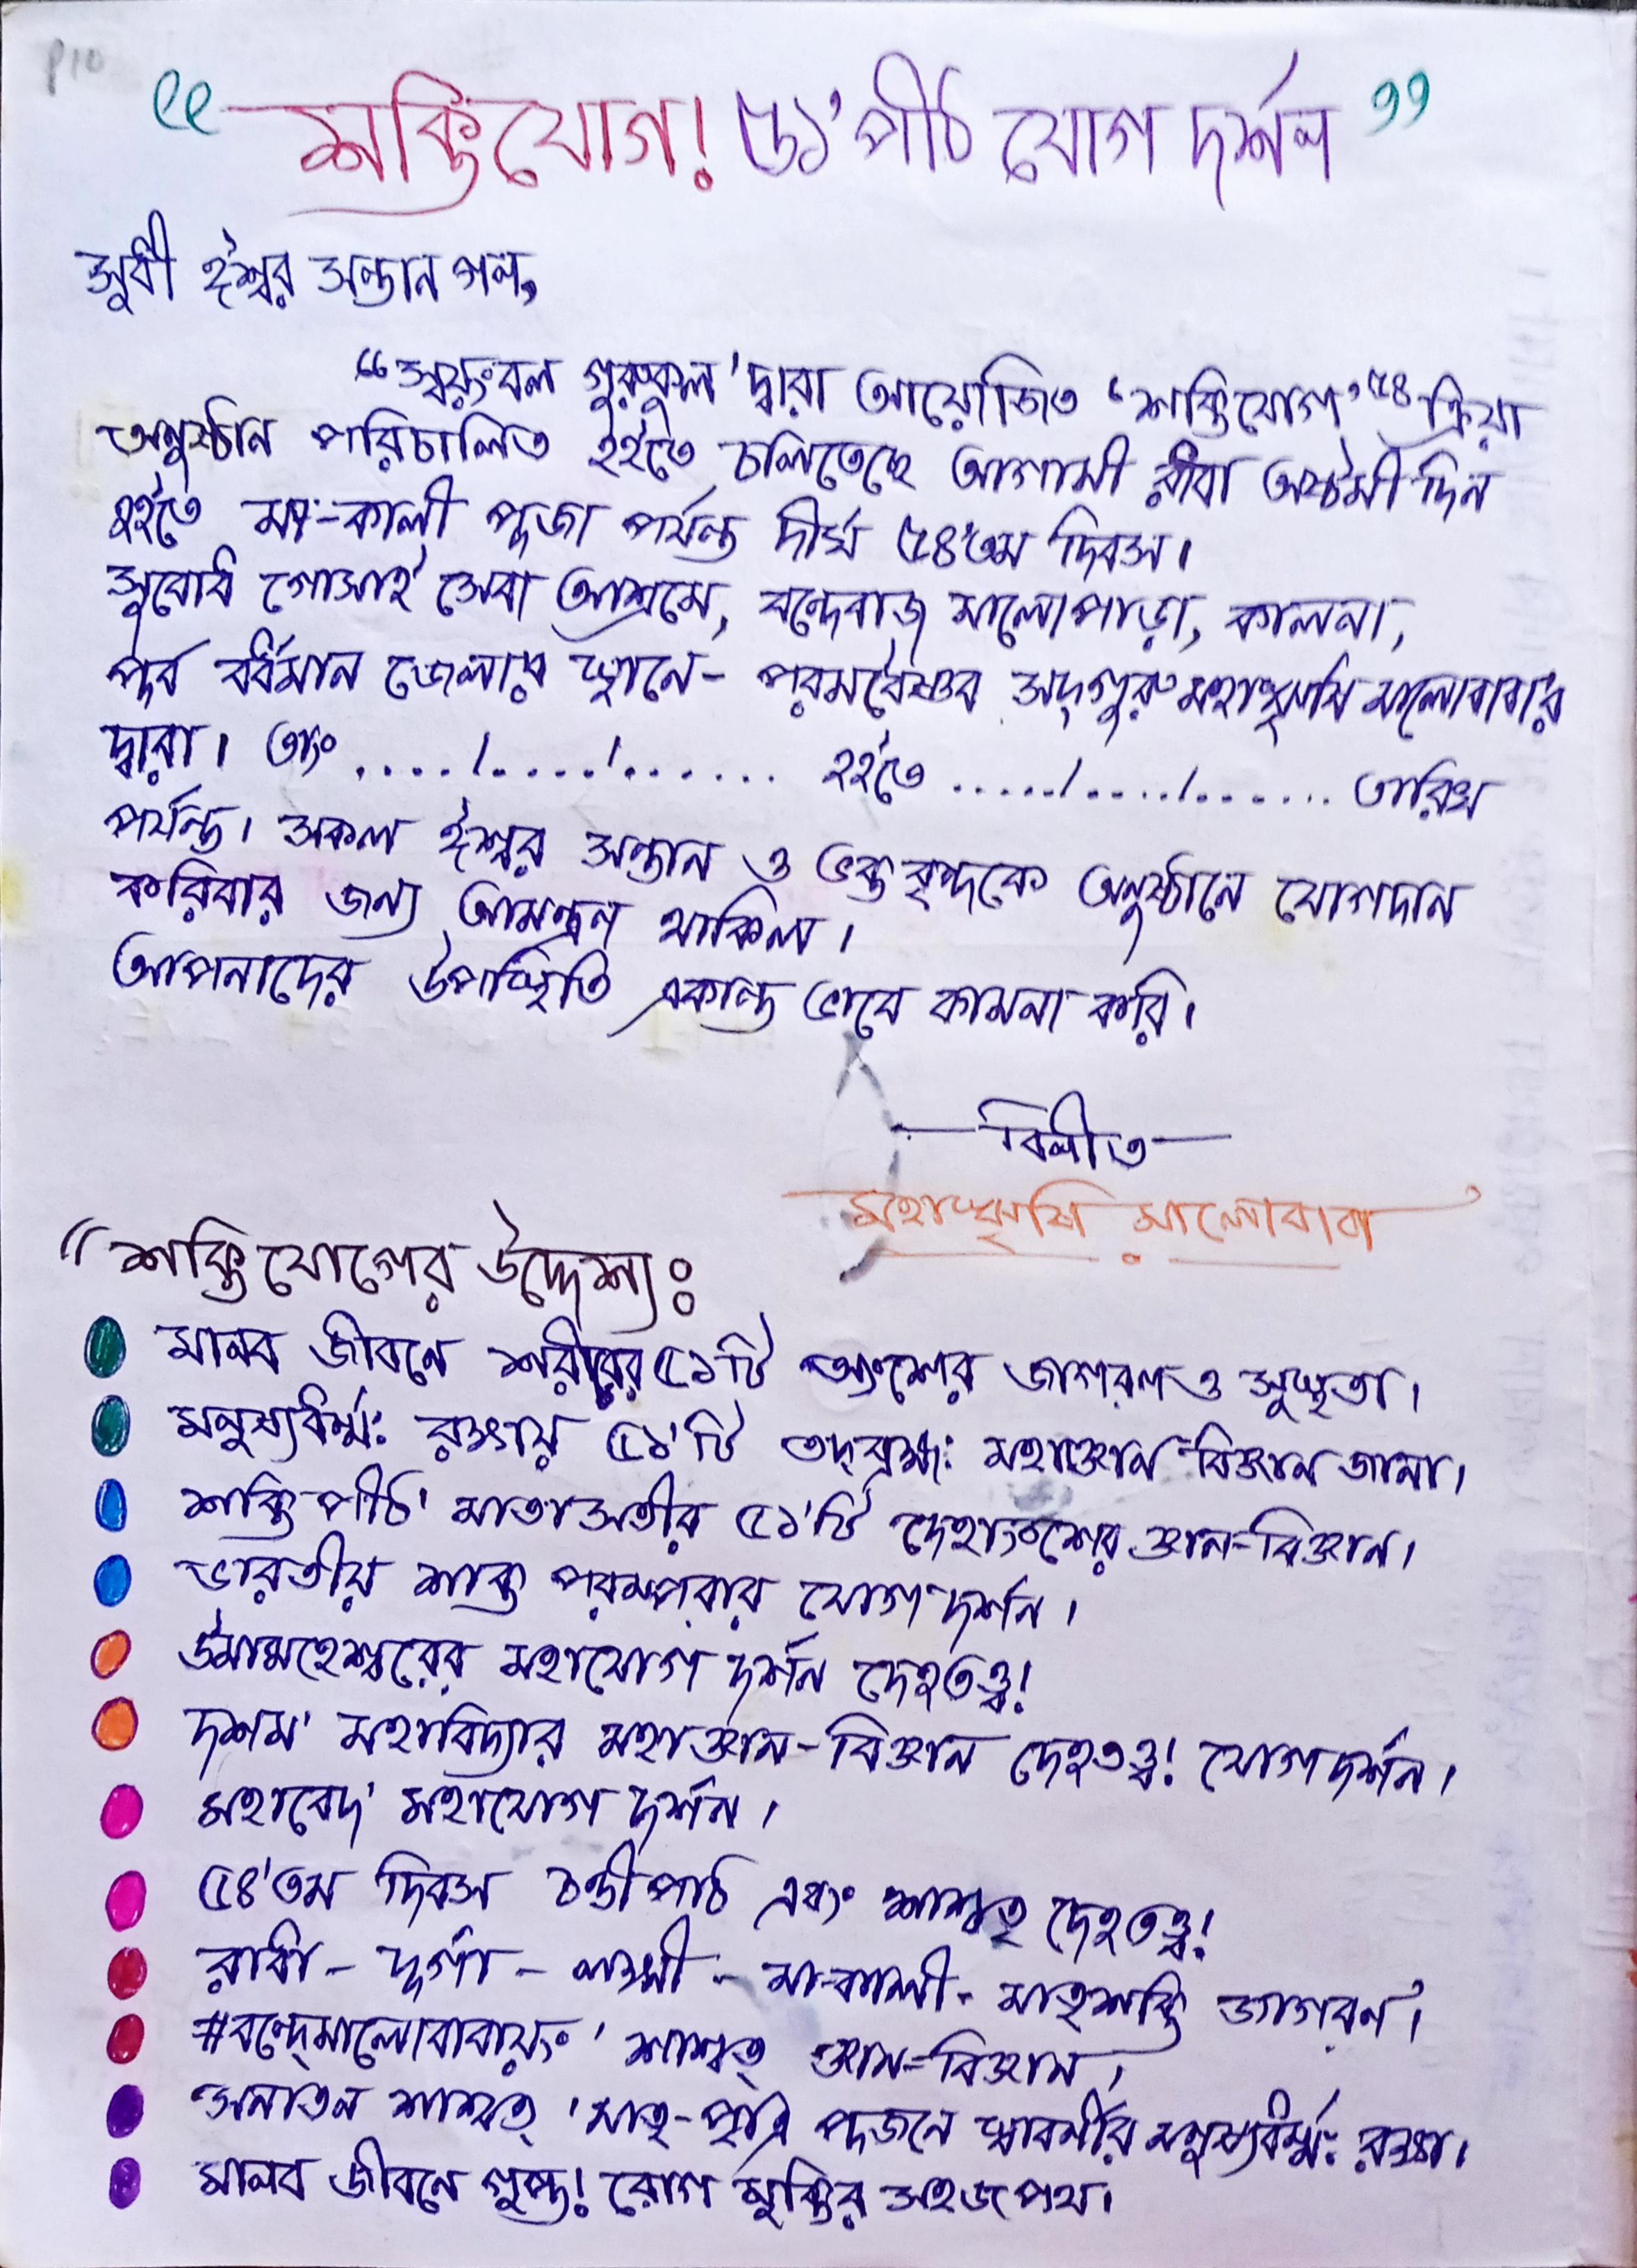 P10
“শক্তিযোগ! ৫১'পীঠ যোগ দর্শন”
সুধী ঈশ্বর সন্তান গণ,
“স্বয়ংবল গুরুকুল' দ্বারা আয়োজিত ‘শক্তিযোগ' ৫৪ ক্রিয়া
অনুষ্ঠান পরিচালিত হইতে চলিতেছে আগামী রাধা অষ্টমী দিন
হইতে মা-কালী পূজা পর্যন্ত দীর্ঘ ৫৪'তম দিবস।
সুবোধ গোসাই সেবা আশ্রমে, বন্দেবাজ মালোপাড়া, কালনা,
পূর্ব বর্ধমান জেলার স্থানে- পরমবৈষ্ণব সদ্গুরু মহাঋষি মালোবাবার
দ্বারা। তাং ..../..../...... হইতে ...../..../...... তারিখ
পর্যন্ত। সকল ঈশ্বর সন্তান ও ভক্তবৃন্দকে অনুষ্ঠানে যোগদান
করিবার জন্য আমন্ত্রন থাকিল।
আপনাদের উপস্থিতি একান্ত ভাবে কামনা করি।
—বিনীত—
মহাঋষি মালোবাবা
“শক্তিযোগের উদ্দেশ্যঃ
মানব জীবনে শরীরের ৫১টি অংশের জাগরণ ও সুস্থতা।
মনুষ্যধর্ম্মঃ রক্ষায় ৫১'টি তদ্ব্রহ্মঃ মহাজ্ঞান-বিজ্ঞান জানা।
শক্তিপীঠ' মাতাসতীর ৫১'টি দেহাংশের জ্ঞান-বিজ্ঞান।
ভারতীয় শাক্ত পরম্পরার যোগ দর্শন।
উমামহেশ্বরের মহাযোগ দর্শন দেহতত্ত্ব!
দশম' মহাবিদ্যার মহাজ্ঞান-বিজ্ঞান দেহতত্ত্ব! যোগ দর্শন।
মহাবেদ' মহাযোগ দর্শন।
৫৪'তম দিবস চন্ডীপাঠ এবং শাশ্বত্ দেহতত্ত্ব!
রাধা - দূর্গা - লক্ষ্মী - মা-কালী - মাতৃশক্তি জাগরণ।
#বন্দেমালোবাবায়ং' শাশ্বত্ জ্ঞান-বিজ্ঞান,
সনাতন শাশ্বত্ 'মাতৃ-পৃত্রি পূজনে স্বাবর্নীর মনুষ্যধর্ম্মঃ রক্ষা।
মানব জীবনে গুপ্ত! রোগ মুক্তির সহজ পথ।